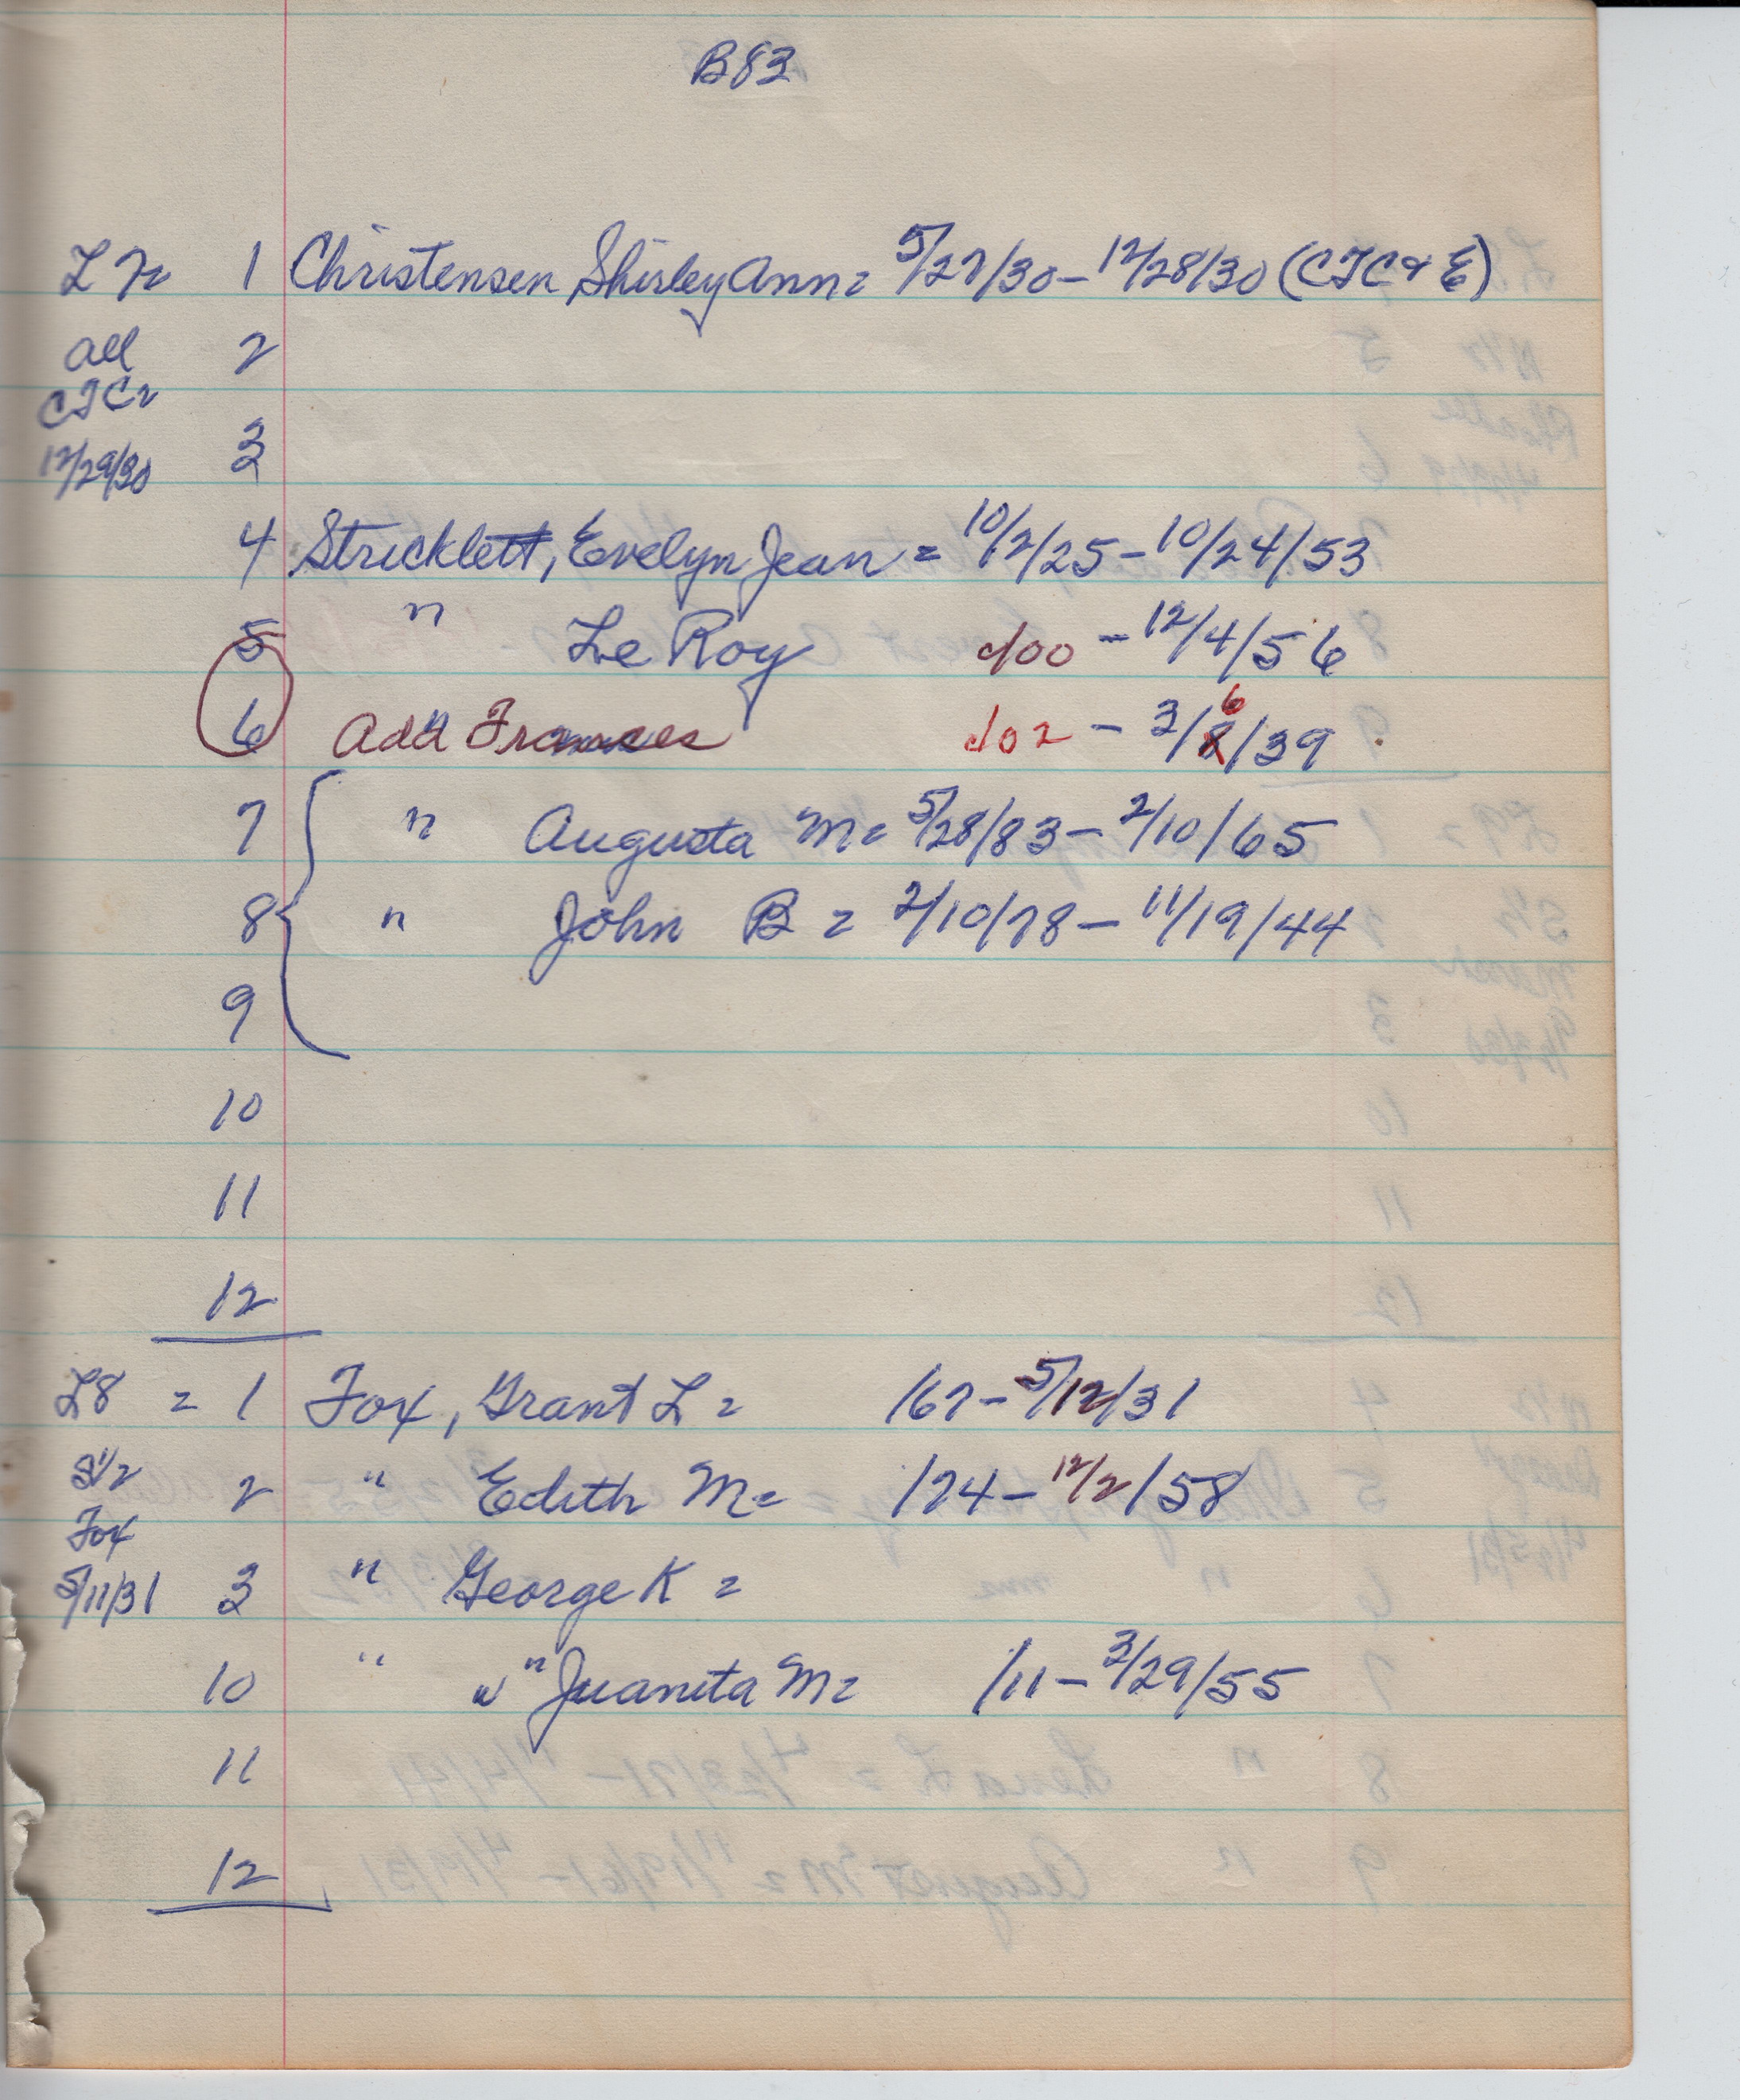 B83
L 7 = 1 Christensen, Shirley Ann = 5/27/30 - 12/28/30 (CTC & E)
All 2
CTC =
12/29/30 3
4 Stricklett, Evelyn Jean = 10/2/25 - 10/24/53
5 " Le Roy 1/00 - 12/4/56
6 Add Frances 1/02 - 3/6/39
7 " Augusta M = 5/28/83 - 2/10/65
8 " John B = 2/10/78 - 11/19/44
9
10
11
12
L8 = 1 Fox, Grant L = /67 - 5/12/31
S1/2 2 " Edith M = /74 - 12/2/58
Fox
5/11/31 3 " George K =
10 " " Juanita M = /11 - 3/29/55
11
12